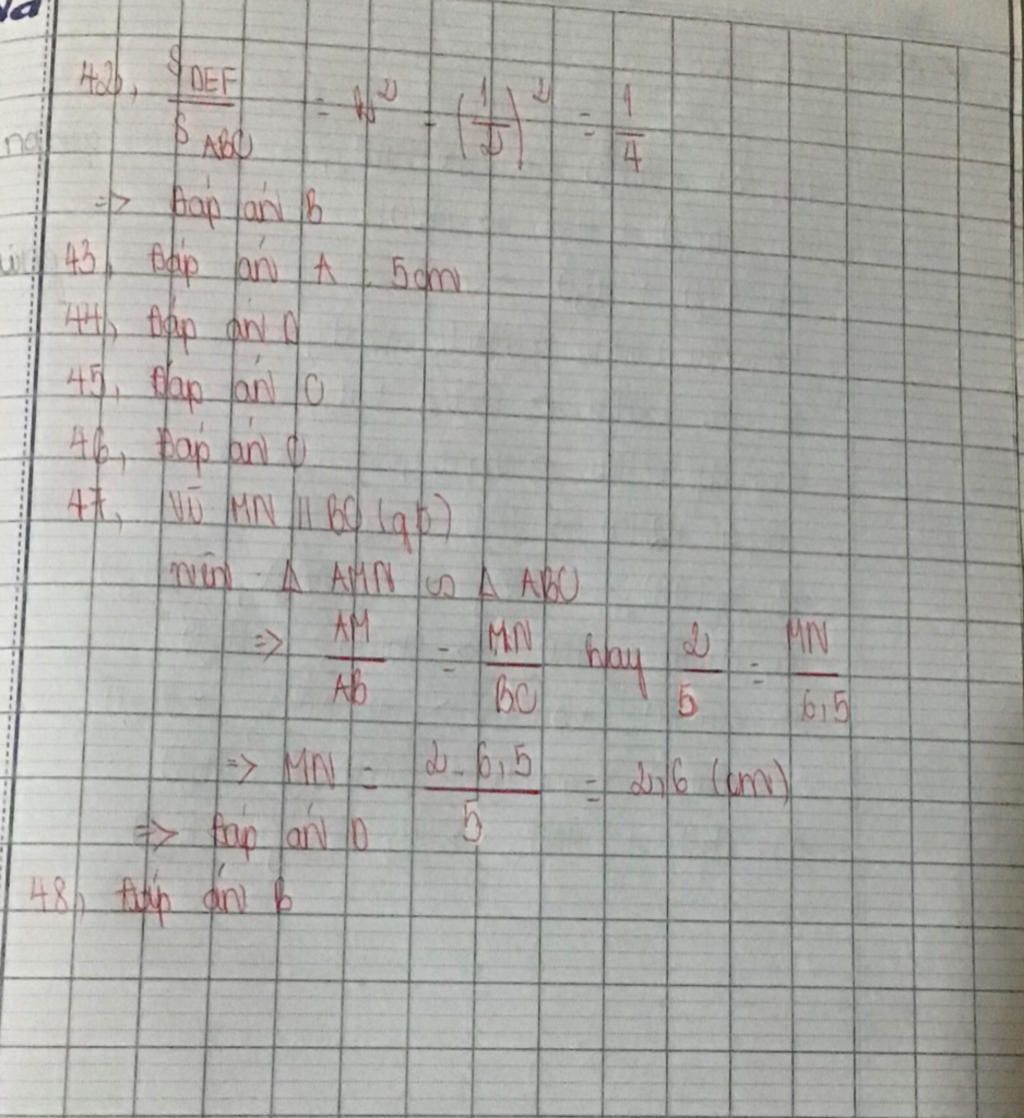 42, S DEF / S ABC = k² = (1/2)² = 1/4
=> Đáp án B
43, Đáp án A. 5cm
44, Đáp án D
45, Đáp án C
46, Đáp án D
47, Vì MN // BC (gt)
nên Δ AMN ∽ Δ ABC
=> AM/AB = MN/BC hay 2/5 = MN/6,5
=> MN = 2.6,5/5 = 2,6 (cm)
=> Đáp án D
48, Đáp án B